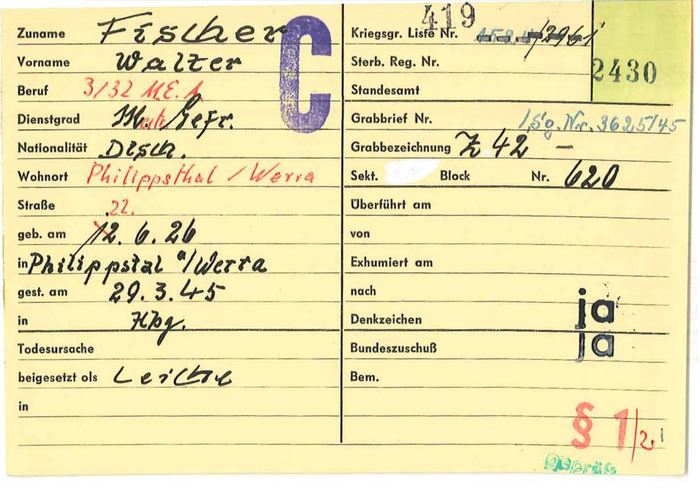 Zuname Fischer
Vorname Walter
Beruf 3/32 M.E.1
Dienstgrad Gefr.
Nationalität Dtsch.
Wohnort Philippsthal / Werra
Straße 22.
geb. am 12. 6. 26
in Philippstal a/Werra
gest. am 29. 3. 45
in Hbg.
Todesursache
beigesetzt als Leiche
in
C
Kriegsgr. Liste Nr. 419 /2961
2430
Sterb. Reg. Nr.
Standesamt
Grabbrief Nr. /Sg. Nr. 3625/45
Grabbezeichnung Z 42 -
Sekt. Block Nr. 620
Überführt am
von
Exhumiert am
nach
Denkzeichen ja
Bundeszuschuß ja
Bem.
§ 1/2
geprüft